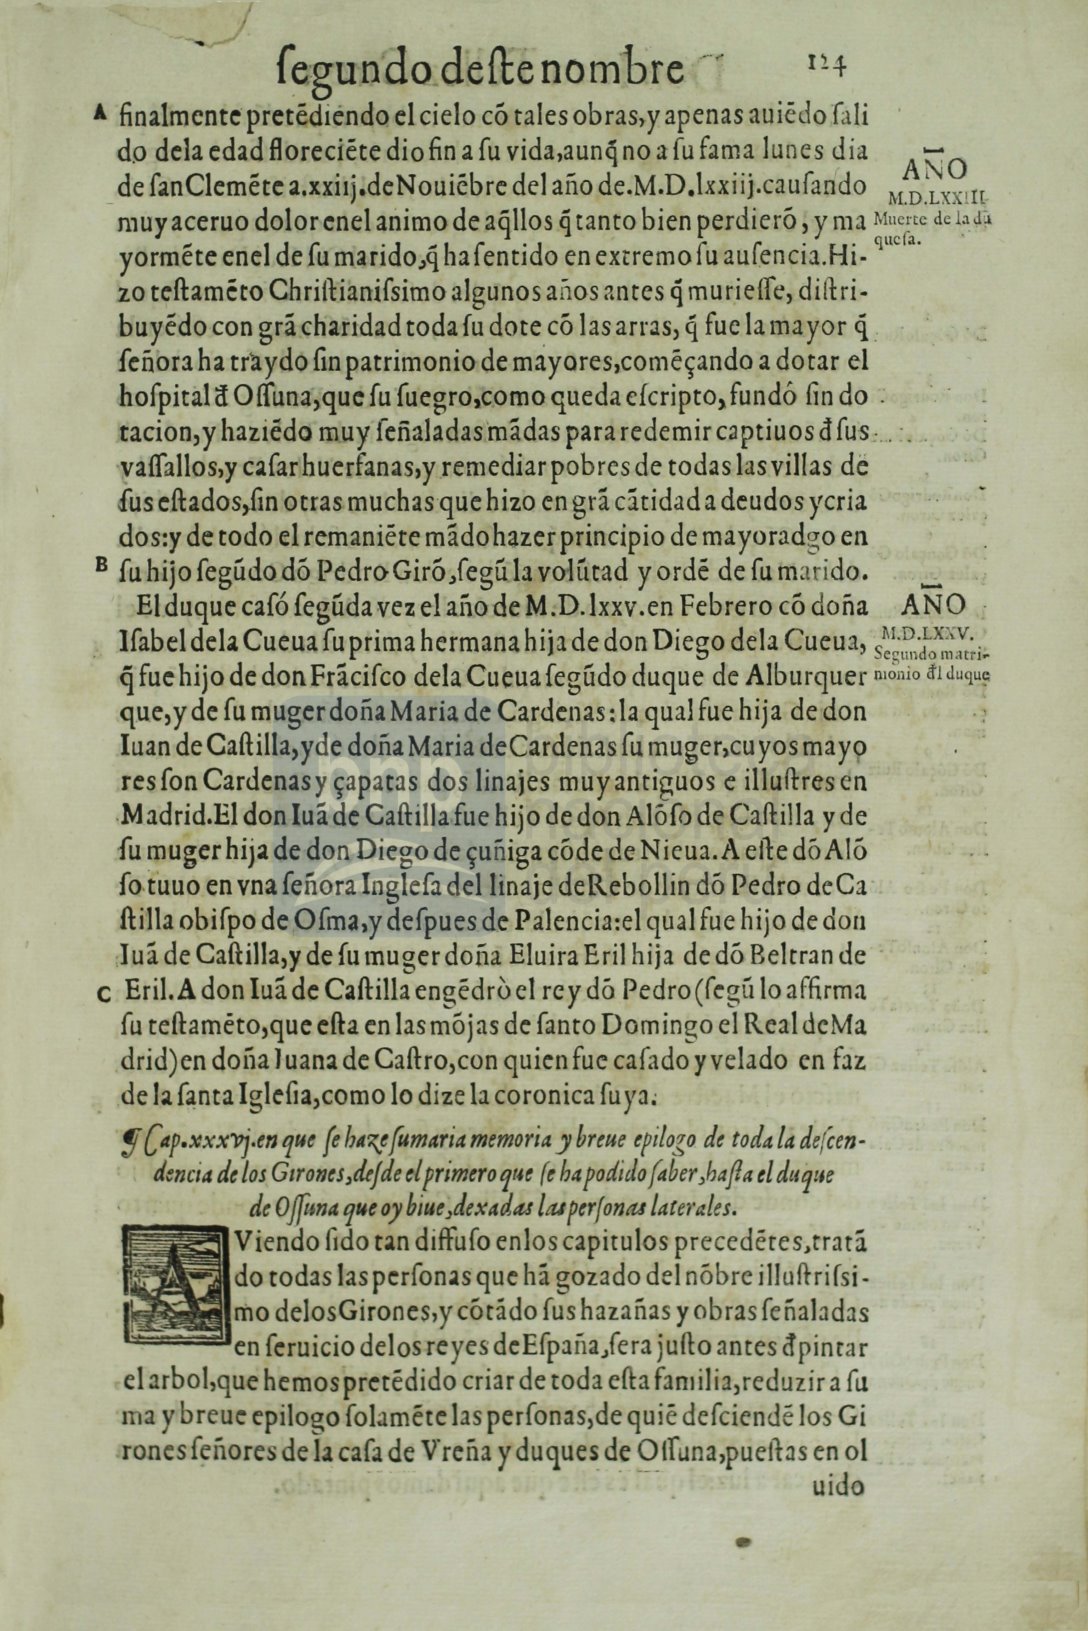 ſegundo deſte nombre 124
A finalmente pretēdiendo el cielo cō tales obras, y apenas auiēdo ſali
do dela edad floreciēte dio fin a ſu vida, aunq̄ no a ſu fama lunes dia
de ſan Clemēte a.xxiij.de Nouiēbre del año de.M.D.lxxiij.cauſando
muy aceruo dolor enel animo de aq̄llos q̄ tanto bien perdierō, y ma
yormēte enel de ſu marido, q̄ ha ſentido en extremo ſu auſencia. Hi-
zo teſtamēto Chriſtianiſsimo algunos años antes q̄ murieſſe, diſtri-
buyēdo con grā charidad toda ſu dote cō las arras, q̄ fue la mayor q̄
ſeñora ha traydo ſin patrimonio de mayores, comēçando a dotar el
hoſpital đ Oſſuna, que ſu ſuegro, como queda eſcripto, fundó ſin do
tacion, y haziēdo muy ſeñaladas mādas para redemir captiuos đ ſus
vaſſallos, y caſar huerfanas, y remediar pobres de todas las villas de
ſus eſtados, ſin otras muchas que hizo en grā cātidad a deudos y cria
dos: y de todo el remaniēte mādo hazer principio de mayoradgo en
B ſu hijo ſegūdo dō Pedro Girō, ſegū la volūtad y ordē de ſu marido.
El duque caſó ſegūda vez el año de M.D.lxxv.en Febrero cō doña
Iſabel dela Cueua ſu prima hermana hija de don Diego dela Cueua,
q̄ fue hijo de don Frāciſco dela Cueua ſegūdo duque de Alburquer
que, y de ſu muger doña Maria de Cardenas: la qual fue hija de don
Iuan de Caſtilla, y de doña Maria de Cardenas ſu muger, cuyos mayo
res ſon Cardenas y çapatas dos linajes muy antiguos e illuſtres en
Madrid. El don Iuā de Caſtilla fue hijo de don Alōſo de Caſtilla y de
ſu muger hija de don Diego de çuñiga cōde de Nieua. A eſte dō Alō
ſo tuuo en vna ſeñora Ingleſa del linaje de Rebollin dō Pedro de Ca
ſtilla obiſpo de Oſma, y deſpues de Palencia: el qual fue hijo de don
Iuā de Caſtilla, y de ſu muger doña Eluira Eril hija de dō Beltran de
C Eril. A don Iuā de Caſtilla engēdrò el rey dō Pedro (ſegū lo affirma
ſu teſtamēto, que eſta en las mōjas de ſanto Domingo el Real de Ma
drid) en doña Iuana de Caſtro, con quien fue caſado y velado en faz
de la ſanta Igleſia, como lo dize la coronica ſuya.
¶ Cap.xxxvj.en que ſe haze ſumaria memoria y breue epilogo de toda la deſcen-
dencia de los Girones, deſde el primero que ſe ha podido ſaber, haſta el duque
de Oſſuna que oy biue, dexadas las perſonas laterales.
AViendo ſido tan diffuſo enlos capitulos precedētes, tratā
do todas las perſonas que hā gozado del nōbre illuſtriſsi-
mo delos Girones, y cōtādo ſus hazañas y obras ſeñaladas
en ſeruicio delos reyes de Eſpaña, ſera juſto antes đ pintar
el arbol, que hemos pretēdido criar de toda eſta familia, reduzir a ſu
ma y breue epilogo ſolamēte las perſonas, de quiē deſciendē los Gi
rones ſeñores de la caſa de Vreña y duques de Oſſuna, pueſtas en ol
uido
AÑO
M.D.LXXIII
Muerte de la du
queſa.
AÑO
M.D.LXXV.
Segundo matri-
monio đl duque